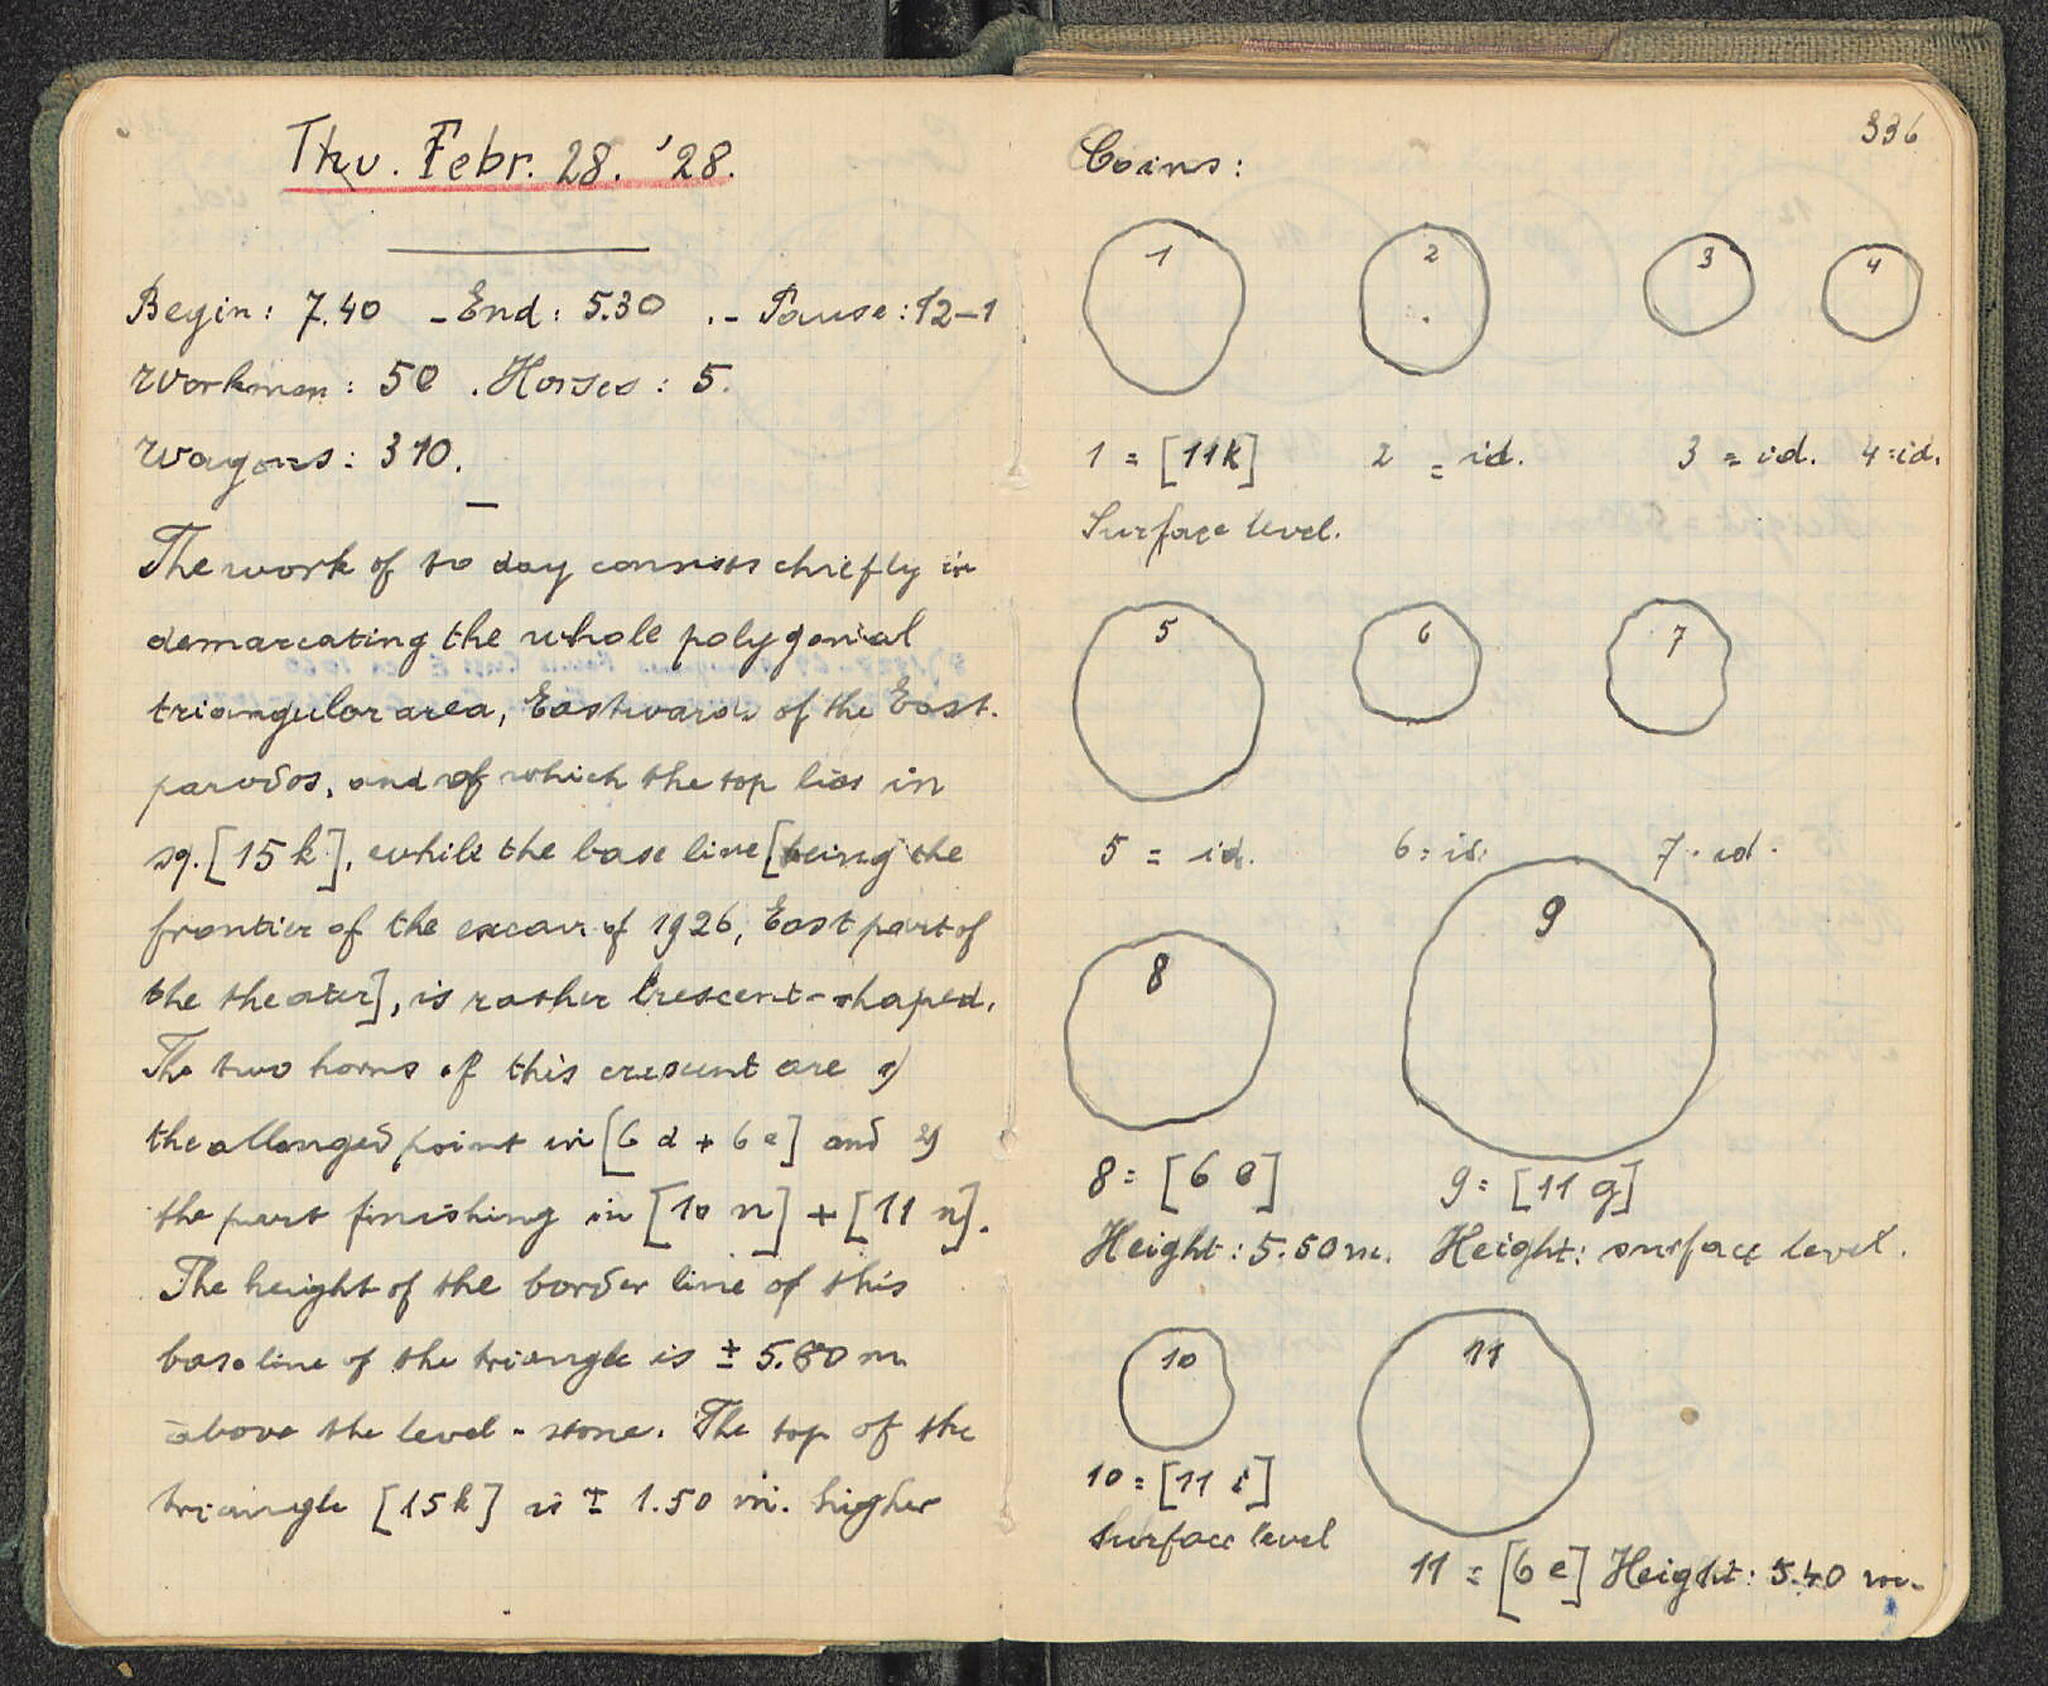 Thu. Febr. 28. '28.
Begin: 7.40 - End: 5.30 .- Pause: 12-1
Workmen: 50 . Horses: 5.
Wagons: 310.
The work of to day consists chiefly in
demarcating the whole polygonial
triangular area, Eastwards of the East.
parodos, and of which the top lies in
sq. [15 k], while the base line [being the
frontier of the excav. of 1926, East part of
the theater], is rather Crescent-shaped.
The two horns of this crescent are 1)
the allonged point in [6 d + 6 e] and 2)
the part finishing in [10 n] + [11 n].
The height of the border line of this
base line of the triangle is ± 5.60 m
above the level-stone. The top of the
triangle [15k] is ± 1.50 m. higher
336
Coins:
1 2 3 4
1 = [11k] 2 = id. 3 = id. 4 = id.
Surface level.
5 6 7
5 = id. 6 = id. 7 = id.
8 9
8 = [6 e] 9 = [11 g]
Height: 5.50 m. Height: surface level.
10 11
10 = [11 i]
Surface level
11 = [6 e] Height: 5.40 m.